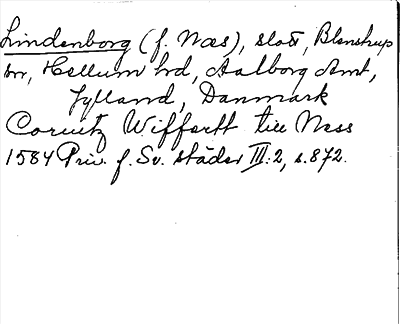 Lindenborg (f. Næs), slott, Blenstrup
sn, Hellum hd, Aalborg Amt,
Jylland, Danmark
Corvitz Wiffertt till Ness
1584 Priv. f. Sv. städer III:2, s.872.